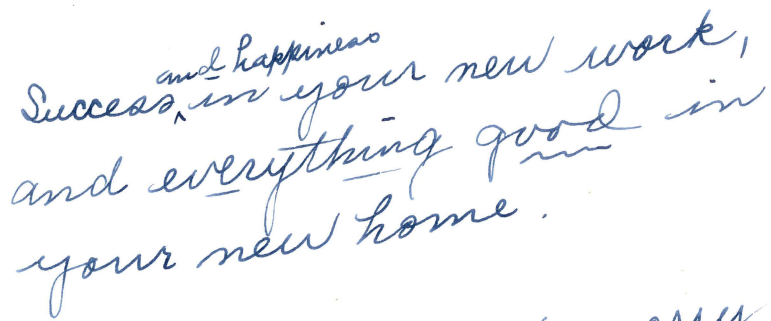 Success and happiness in your new work,
and everything good in
your new home.